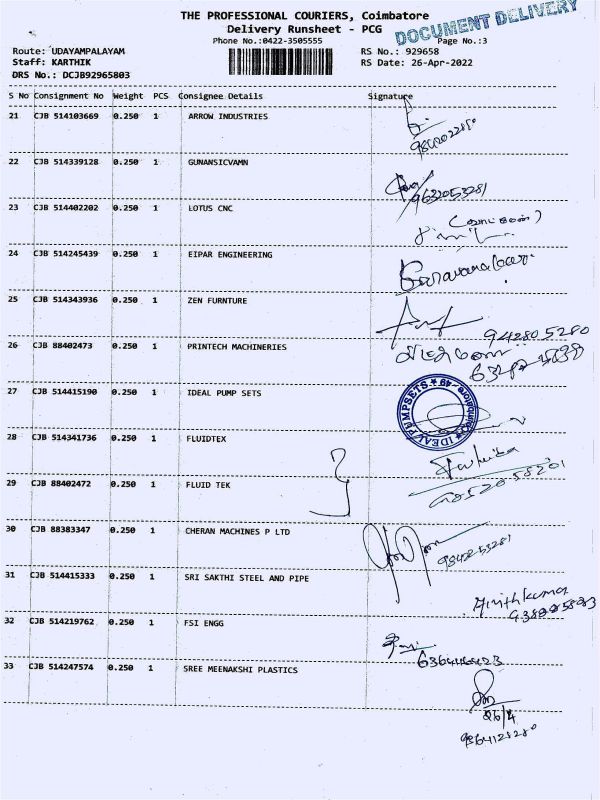 THE PROFESSIONAL COURIERS, Coimbatore
DOCUMENT DELIVERY
Delivery Runsheet - PCG
Phone No.:0422-3505555
Page No.:3
Route: UDAYAMPALAYAM
RS No.: 929658
Staff: KARTHIK
RS Date: 26-Apr-2022
DRS No.: DCJB92965803
S No Consignment No Weight PCS Consignee Details Signature
21 CJB 514103669 0.250 1 ARROW INDUSTRIES
22 CJB 514339128 0.250 1 GUNANSICVAMN
9632053281
23 CJB 514402202 0.250 1 LOTUS CNC
24 CJB 514245439 0.250 1 EIPAR ENGINEERING
25 CJB 514343936 0.250 1 ZEN FURNTURE
942805280
26 CJB 88402473 0.250 1 PRINTECH MACHINERIES
27 CJB 514415190 0.250 1 IDEAL PUMP SETS
IDEAL PUMPSETS
28 CJB 514341736 0.250 1 FLUIDTEX
29 CJB 88402472 0.250 1 FLUID TEK
30 CJB 88383347 0.250 1 CHERAN MACHINES P LTD
31 CJB 514415333 0.250 1 SRI SAKTHI STEEL AND PIPE
32 CJB 514219762 0.250 1 FSI ENGG
33 CJB 514247574 0.250 1 SREE MEENAKSHI PLASTICS
26/4